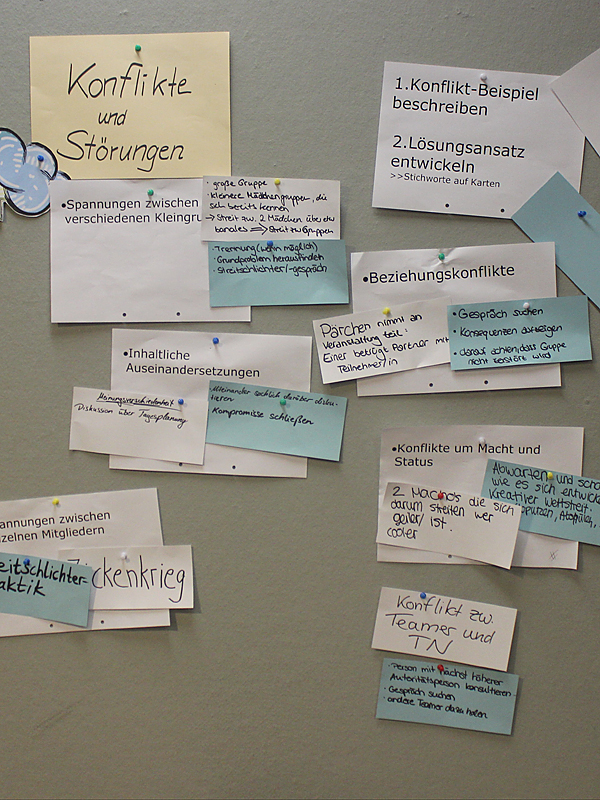 Konflikte
und
Störungen
1.Konflikt-Beispiel
beschreiben
2.Lösungsansatz
entwickeln
>>Stichworte auf Karten
•Spannungen zwischen
verschiedenen Kleingru
• große Gruppe
• kleinere Mädchengruppen, die
sich bereits kennen
→ Streit zw. 2 Mädchen über etw
banales ⇒ Streit zw Gruppen
• Trennung (wenn möglich)
• Grundproblem herausfinden
• Streitschlichter/-gespräch
•Beziehungskonflikte
Pärchen nimmt an
Veranstaltung teil:
Einer betrügt Partner mit
Teilnehmer/in
• Gespräch suchen
• Konsequenzen aufzeigen
• darauf achten, dass Gruppe
nicht zerstört wird
•Inhaltliche
Auseinandersetzungen
Meinungsverschiedenheit
Diskussion über Tagesplanung
Miteinander sachlich darüber disku-
tieren
Kompromisse schließen
•Konflikte um Macht und
Status
2 Macho's die sich
darum streiten wer
geiler/ist.
cooler
Abwarten und scha
wie es sich entwicke
Kreativer Wettstreit
annungen zwischen
zelnen Mitgliedern
eitschlichter-
aktik
ickenkrieg
Konflikt zw.
Teamer und
TN
• Person mit nächst höherer
Autoritätsperson konsultieren
• Gespräch suchen
• andere Teamer dazu holen